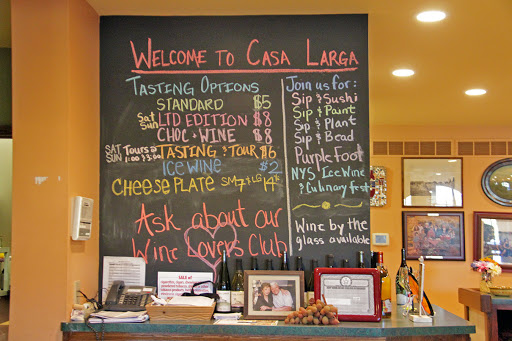 Welcome to Casa Larga
Tasting Options
Standard $5
Sat Sun Ltd Edition $8
Choc + Wine $8
Sat Sun Tours @ 1:00 & 3:00 Tasting & Tour $6
Ice Wine $2
Cheese Plate Sm 7 & Lg 14
Ask about our
Wine Lovers Club
Join us for:
Sip & Sushi
Sip & Paint
Sip & Plant
Sip & Bead
Purple Foot
NYS Ice Wine
& Culinary fest
Wine by the
glass available